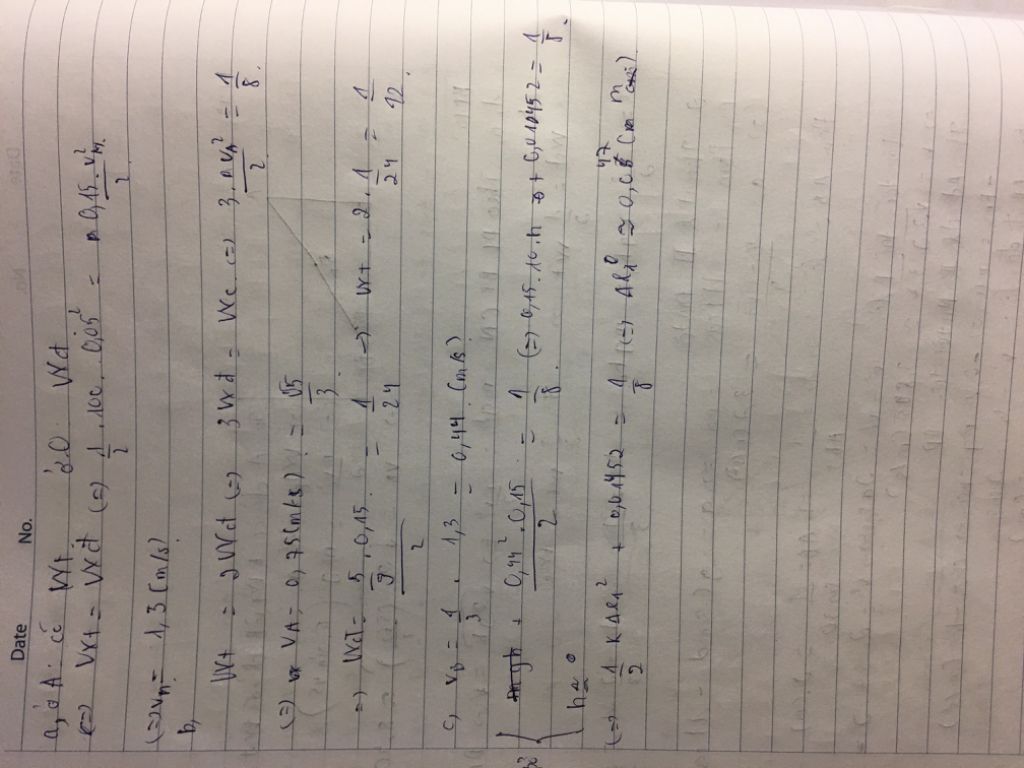 Date No.
a, ở A: có Wt ở O: Wđ
(=) Wt = Wđ (=) 1/2 . 100 . 0,05² = 0,15 . vm²/2
(=) vm = 1,3 (m/s)
b,
Wt = 2Wđ (=) 3Wđ = Wc (=) 3. m vA²/2 = 1/8 .
(=) vA = 0,75 (m/s) = √5/3
=) Wđ = 5/9 . 0,15/2 = 1/24 =) Wt = 2. 1/24 = 1/12 .
c, vB = 1/3 . 1,3 = 0,44 (m/s)
+ 0,44² . 0,15/2 = 1/8 (=) 0,15 . 10 . h + 0,01452 = 1/8 .
h = 0
(=) 1/2 K Δl1² + 0,01452 = 1/8 (=) Δl1 ≃ 0,047 (m)